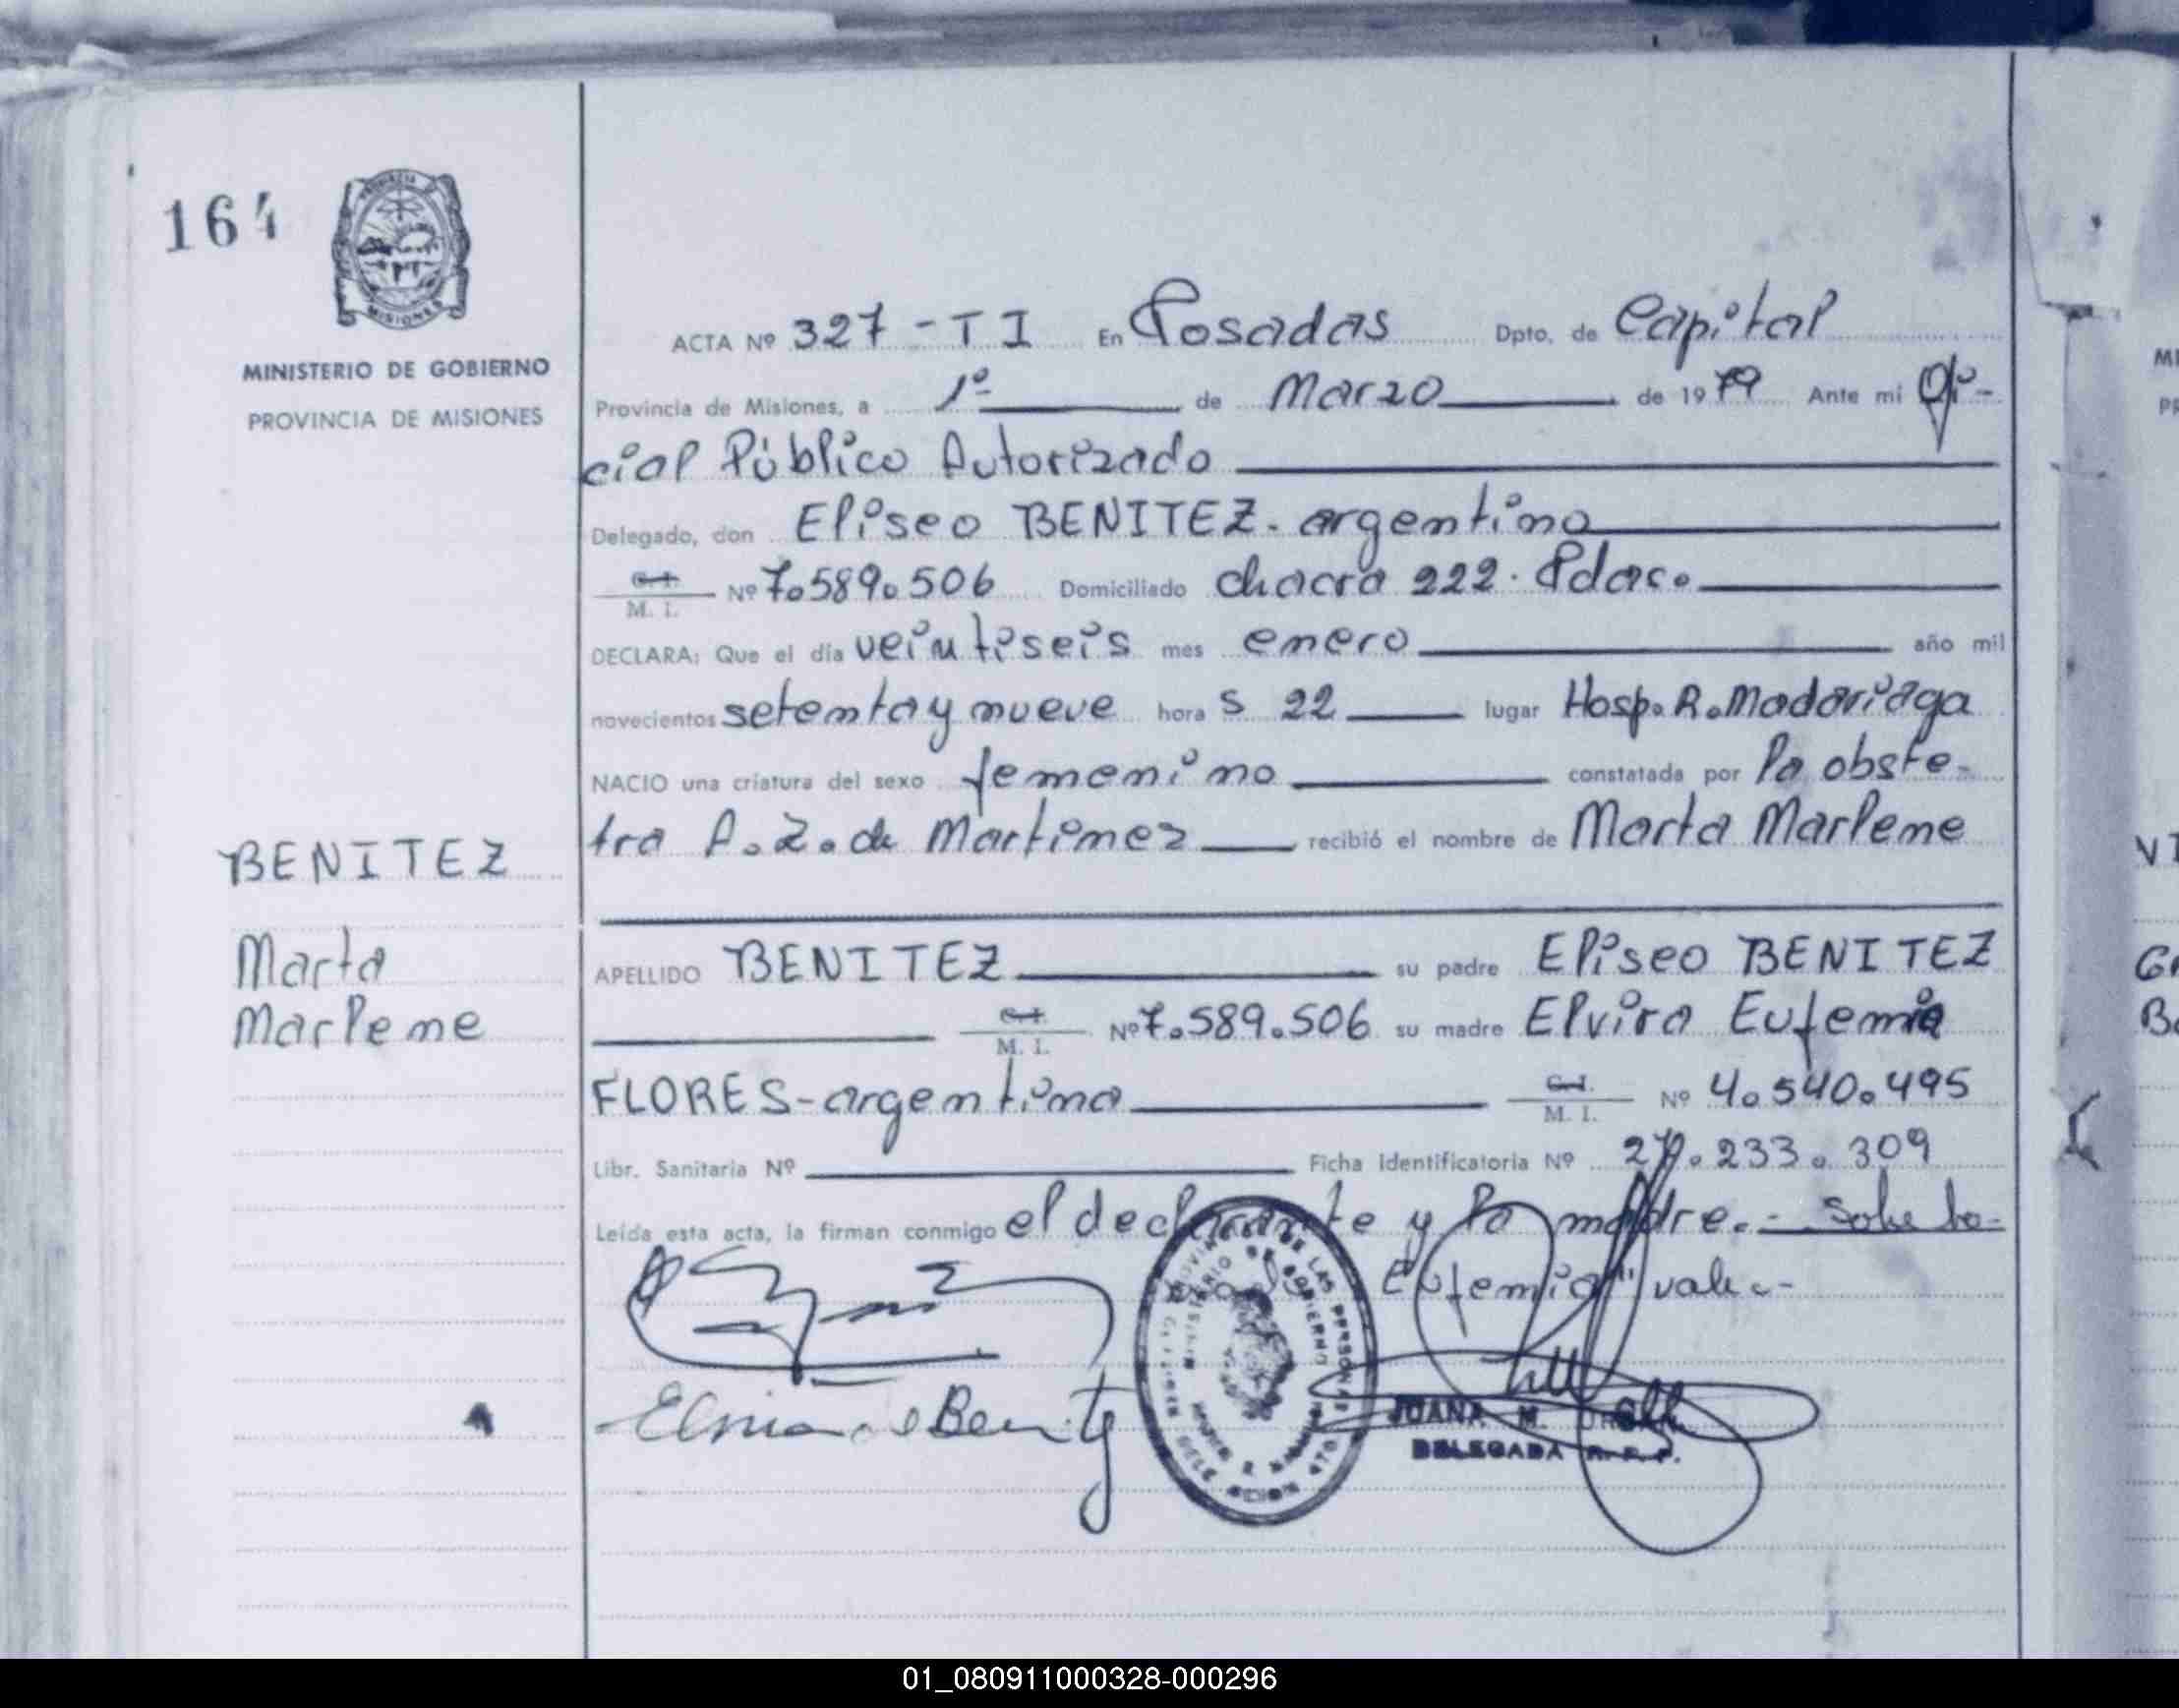 164
PROVINCIA DE
MISIONES
MINISTERIO DE GOBIERNO
PROVINCIA DE MISIONES
BENITEZ
Marta
Marlene
ACTA Nº 327 - T I En Posadas Dpto. de Capital
Provincia de Misiones, a 1º de Marzo de 1979 Ante mi Ofi-
cial Público Autorizado
Delegado, don Eliseo BENITEZ. argentino
C. I. M. I. Nº 7.589.506 Domiciliado chacra 222. Pdas.
DECLARA: Que el día veintiseis mes enero año mil
novecientos setenta y nueve hora s 22 lugar Hosp. R. Madariaga
NACIO una criatura del sexo femenino constatada por la obste-
tra A. Z. de Martinez recibió el nombre de Marta Marlene
APELLIDO BENITEZ su padre Eliseo BENITEZ
C. I. M. I. Nº 7.589.506 su madre Elvira Eufemia
FLORES - argentina C. I. M. I. Nº 4.540.495
Libr. Sanitaria Nº Ficha Identificatoria Nº 27.233.309
Leída esta acta, la firman conmigo el declarante y la madre. - Sobre bo-
Eufemia" vale. -
DE LAS PERSONAS
JUANA M.
DELEGADA R. P. P.
VI
G
B
01_080911000328-000296